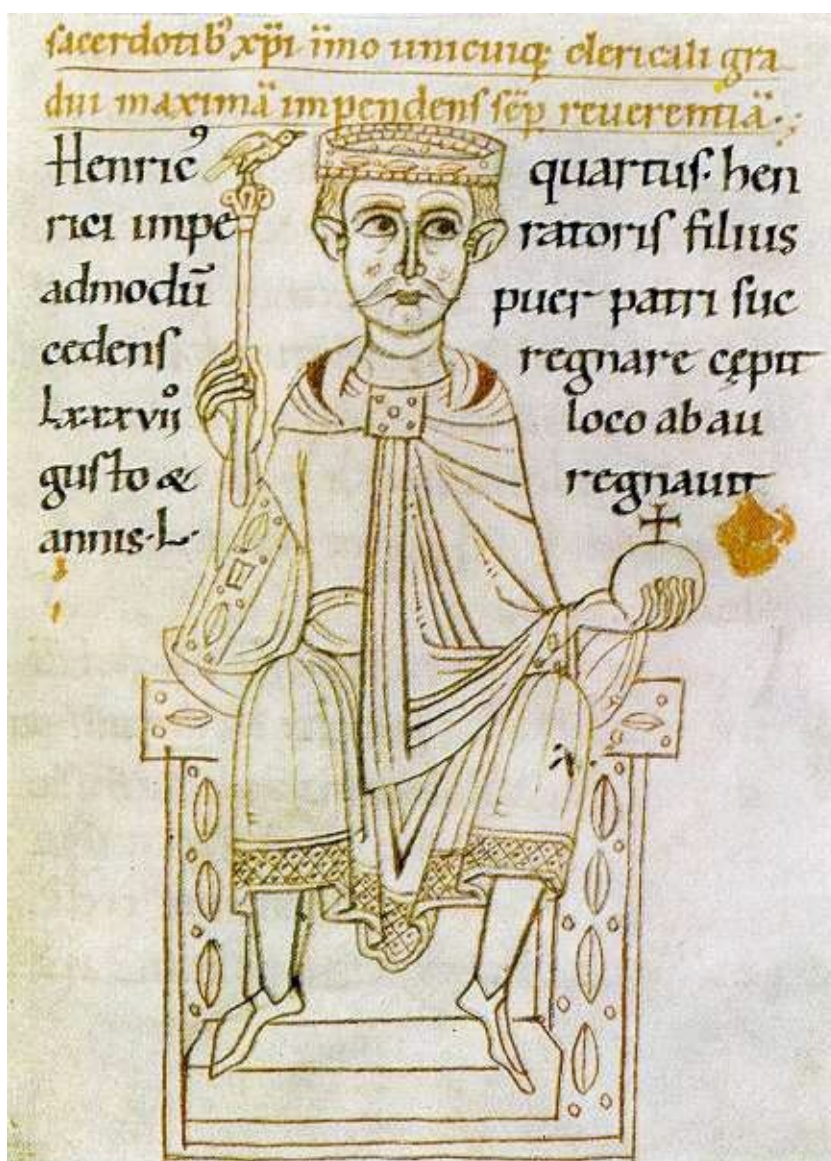 sacerdotib⁹ xp̄i īmo unicuiq; clericali gra
dui maximā impendens sēp reuerentiā.
Henric⁹ quartus· hen
rici impe ratoris filius
admodū puer patri suc
cedens regnare cępit
Lxxxvii° loco ab au
gusto & regnauit
annis·L·